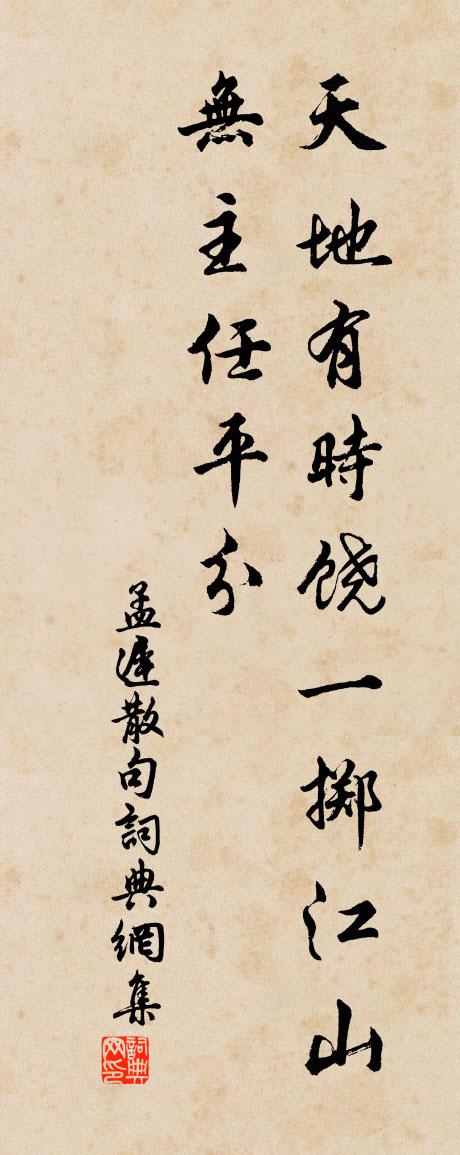 天地有時饶一掷江山
無主任平分
孟遲散句詞典網集
詞典网印